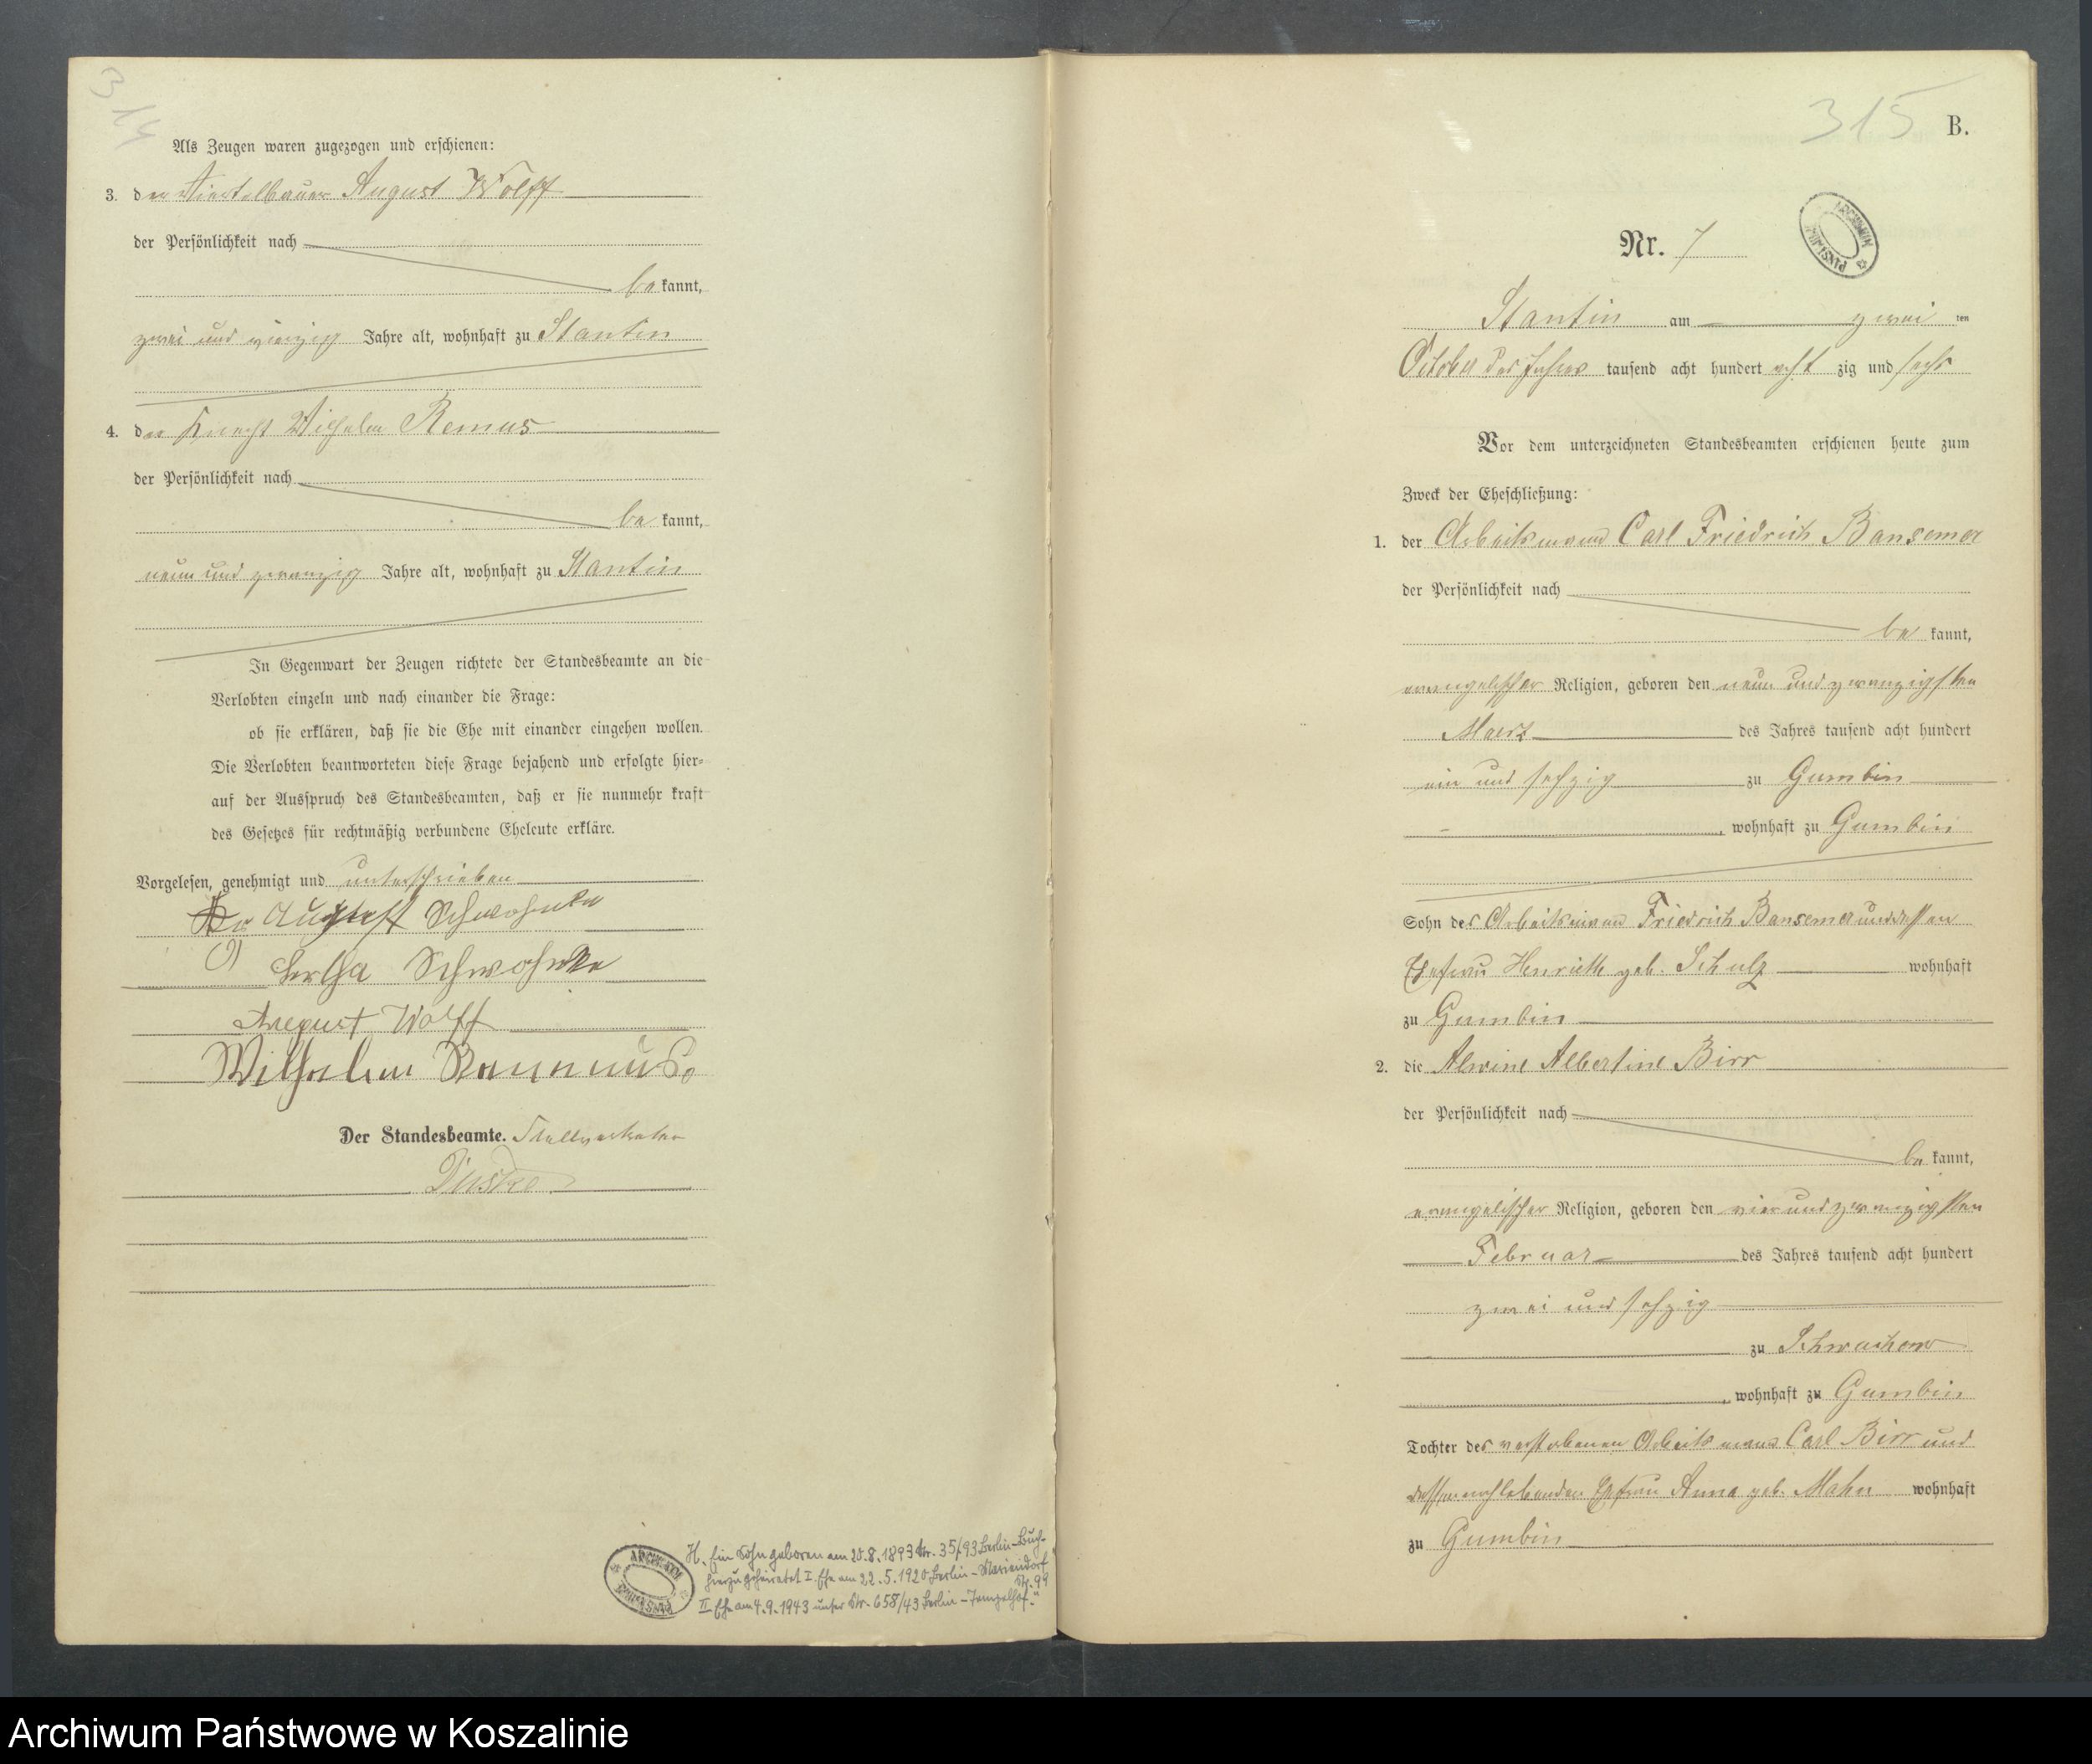 314
Als Zeugen waren zugezogen und erschienen:
3. der Viertelbauer August Wolff
der Persönlichkeit nach
be kannt,
zwei und vierzig Jahre alt, wohnhaft zu Stantin
4. der Knecht Wilhelm Remus
der Persönlichkeit nach
be kannt,
neun und zwanzig Jahre alt, wohnhaft zu Stantin
In Gegenwart der Zeugen richtete der Standesbeamte an die
Verlobten einzeln und nach einander die Frage:
ob sie erklären, daß sie die Ehe mit einander eingehen wollen.
Die Verlobten beantworteten diese Frage bejahend und erfolgte hier=
auf der Ausspruch des Standesbeamten, daß er sie nunmehr kraft
des Gesetzes für rechtmäßig verbundene Eheleute erkläre.
Vorgelesen, genehmigt und unterschrieben
August Schwohnke
Bertha Schwohnke
August Wolff
Wilhelm
Der Standesbeamte. Stellvertreter
H. Ein Sohn geboren am 20.8.1893 Nr. 35/93 Berlin-Buch-
hierzu geheiratet I. Ehe am 22.5.1920 Berlin-Mariendorf
Nr. 99
II Ehe am 4.9.1943 unter Nr. 658/43 Berlin-Tempelhof."
ARCHIWUM PAŃSTWOWE
315 B.
ARCHIWUM PAŃSTWOWE
Nr. 7
Stantin am zwei ten
October des Jahres tausend acht hundert acht zig und sechs
Vor dem unterzeichneten Standesbeamten erschienen heute zum
Zweck der Eheschließung:
1. der Arbeitsmann Carl Friedrich Bansemer
der Persönlichkeit nach
be kannt,
evangelischer Religion, geboren den neun und zwanzigsten
Maerz des Jahres tausend acht hundert
ein und sechzig zu Gumbin
, wohnhaft zu Gumbin
Sohn des Arbeitsmann Friedrich Bansemer und dessen
Ehefrau Henriette geb. Schulz wohnhaft
zu Gumbin
2. die Alwine Albertine Birr
der Persönlichkeit nach
be kannt,
evangelischer Religion, geboren den vier und zwanzigsten
Februar des Jahres tausend acht hundert
zwei und sechzig
zu Schwuchow
, wohnhaft zu Gumbin
Tochter des verstorbenen Arbeitsmann Carl Birr und
dessen noch lebenden Ehefrau Anna geb. Mahn wohnhaft
zu Gumbin
Archiwum Państwowe w Koszalinie